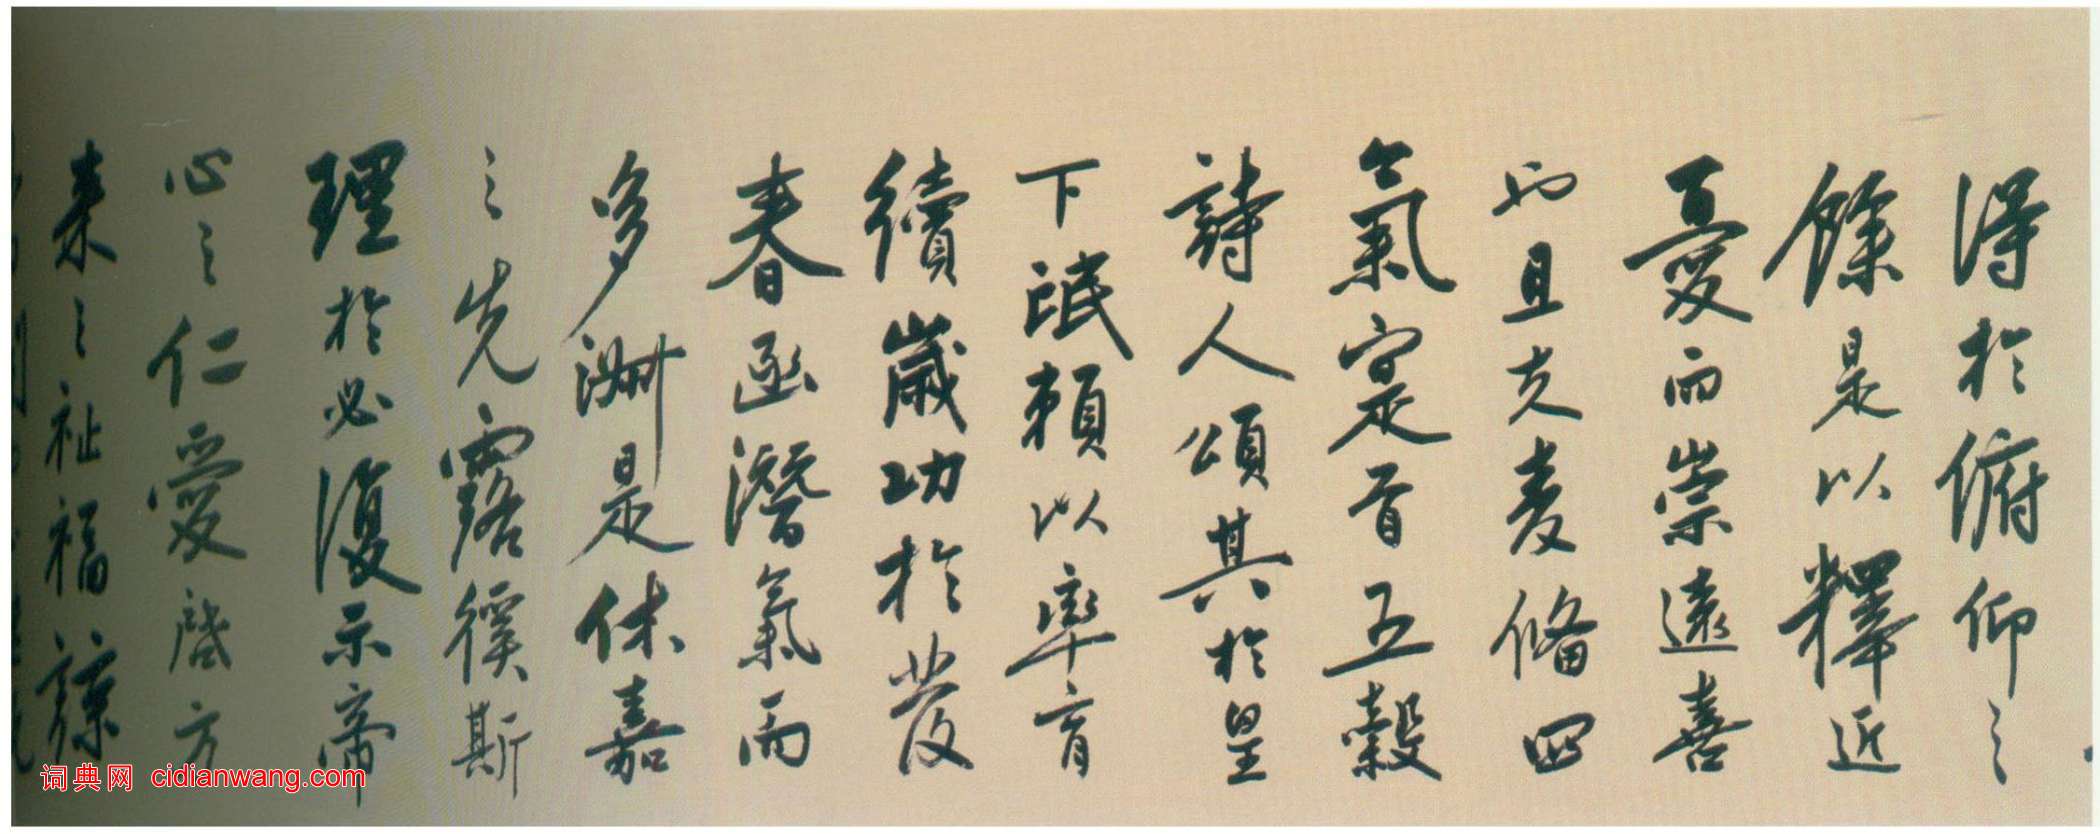 得於俯仰之
餘是以釋近
憂而崇遠喜
也且夫麦備四
氣寔首五穀
詩人頌其於皇
下氓賴以率育
續歲功於發
春函潛氣而
多洲是休嘉
之先露徯斯
理於必復示帝
心之仁愛啓方
来之祉福諒
词典网 cidianwang.com